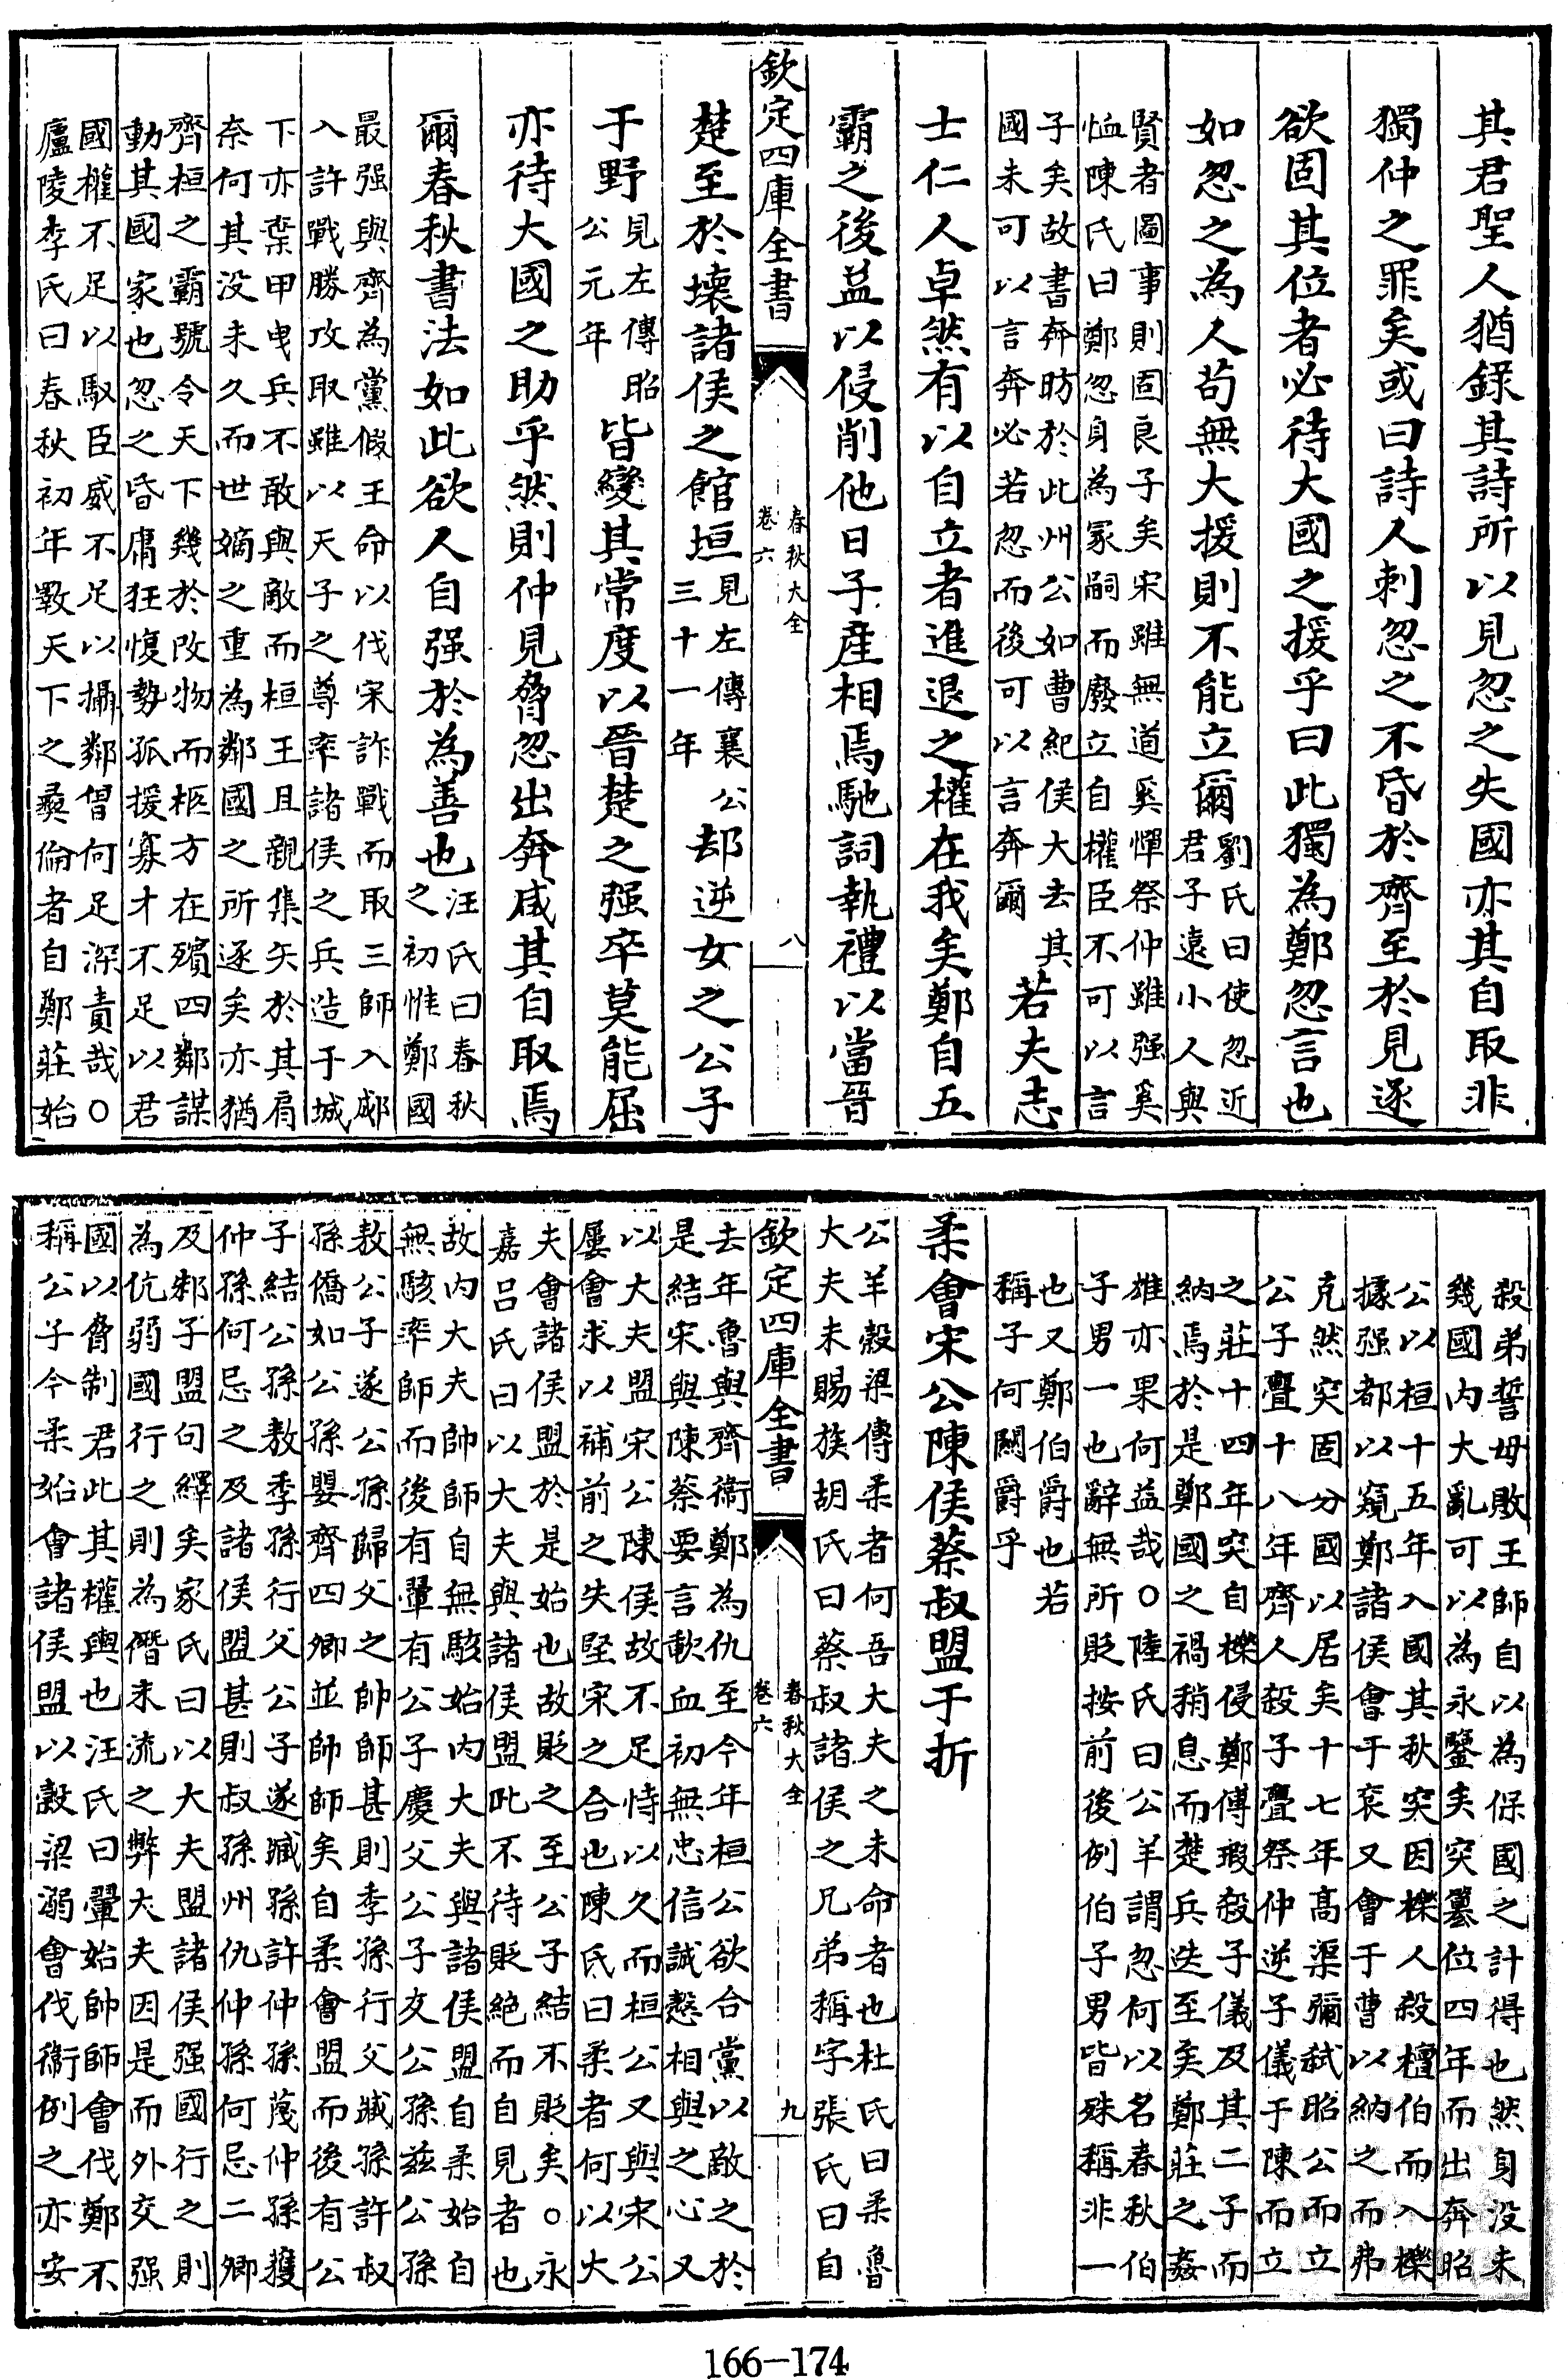 其君聖人猶錄其詩所以見忽之失國亦其自取非
獨仲之罪矣或曰詩人刺忽之不昏於齊至於見逐
欲固其位者必待大國之援乎曰此獨為鄭忽言也
如忽之為人苟無大援則不能立爾
劉氏曰使忽近
君子遠小人與
賢者圖事則固良子矣宋雖無道奚憚祭仲雖强奚
恤陳氏曰鄭忽身為冢嗣而廢立自權臣不可以言
子矣故書奔昉於此州公如曹紀侯大去其
國未可以言奔必若忽而後可以言奔爾
若夫志
士仁人卓然有以自立者進退之權在我矣鄭自五
霸之後益以侵削他日子產相焉馳詞執禮以當晉
欽定四庫全書
春秋大全
卷六
八
楚至於壞諸侯之館垣
見左傳襄公
三十一年
却逆女之公子
于野
見左傳昭
公元年
皆變其常度以晉楚之强卒莫能屈
亦待大國之助乎然則仲見脅忽出奔咸其自取焉
爾春秋書法如此欲人自强於為善也
汪氏曰春秋
之初惟鄭國
最强與齊為黨假王命以伐宋詐戰而取三師入郕
入許戰勝攻取雖以天子之尊率諸侯之兵造于城
下亦棄甲曳兵不敢與敵而桓王且親集矢於其肩
奈何其没未久而世嫡之重為鄰國之所逐矣亦猶
齊桓之霸號令天下幾於改物而柩方在殯四鄰謀
動其國家也忽之昏庸狂愎勢孤援寡才不足以君
國權不足以馭臣威不足以攝鄰何足深責哉○
廬陵李氏曰春秋初年斁天下之彝倫者自鄭莊始
殺弟誓母敗王師自以為保國之計得也然身没未
幾國内大亂可以為永鑒矣突簒位四年而出奔昭
公以桓十五年入國其秋突因櫟人殺檀伯而入櫟
據强都以窺鄭諸侯會于袲又會于曹以納之而弗
克然突固分國以居矣十七年高渠彌弑昭公而立
公子亹十八年齊人殺子亹祭仲逆子儀于陳而立
之莊十四年突自櫟侵鄭傅瑕殺子儀及其二子而
納焉於是鄭國之禍稍息而楚兵迭至矣鄭莊之姦
雄亦果何益哉○陸氏曰公羊謂忽何以名春秋伯
子男一也辭無所貶按前後例伯子男皆殊稱非一
也又鄭伯爵也若
稱子何闕爵乎
柔會宋公陳侯蔡叔盟于折
公羊穀梁傳柔者何吾大夫之未命者也杜氏曰柔魯
大夫未賜族胡氏曰蔡叔諸侯之兄弟稱字張氏曰自
欽定四庫全書
春秋大全
卷六
九
去年魯與齊衞鄭為仇至今年桓公欲合黨以敵之於
是結宋與陳蔡要言歃血初無忠信誠慤相與之心又
以大夫盟宋公陳侯故不足恃以久而桓公又與宋公
屢會求以補前之失堅宋之合也陳氏曰柔者何以大
夫會諸侯盟於是始也故貶之至公子結不貶矣○永
嘉呂氏曰以大夫與諸侯盟此不待貶絕而自見者也
故内大夫帥師自無駭始内大夫與諸侯盟自柔始自
無駭率師而後有翬有公子慶父公子友公孫兹公孫
敖公子遂公孫歸父之帥師甚則季孫行父臧孫許叔
孫僑如公孫嬰齊四卿並帥師矣自柔會盟而後有公
子結公孫敖季孫行父公子遂臧孫許仲孫蔑仲孫貜
仲孫何忌之及諸侯盟甚則叔孫州仇仲孫何忌二卿
及邾子盟句繹矣家氏曰以大夫盟諸侯强國行之則
為伉弱國行之則為僭末流之弊大夫因是而外交强
國以脅制君此其權輿也汪氏曰翬始帥師會伐鄭不
稱公子今柔始會諸侯盟以穀梁溺會伐衞例之亦安
166—174